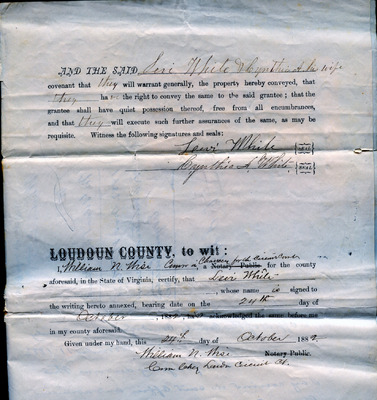 AND THE SAID Levi White & Cynthia A. his wife
covenant that they will warrant generally, the property hereby conveyed, that
they have the right to convey the same to the said grantee; that the
grantee shall have quiet possession thereof, free from all encumbrances,
and that they will execute such further assurances of the same, as may be
requisite. Witness the following signatures and seals:
Levi White SEAL
Cynthia A. White SEAL
LOUDOUN COUNTY, to wit:
I, William N. Wise Comm in Chancery for the Circuit Court
a Notary Public for the county
aforesaid, in the State of Virginia, certify, that Levi White
, whose name is signed to
the writing hereto annexed, bearing date on the 24th day of
October, acknowledged the same before me
in my county aforesaid.
Given under my hand, this 24th day of October 188
William N. Wise Notary Public.
Com Circuit Ct.